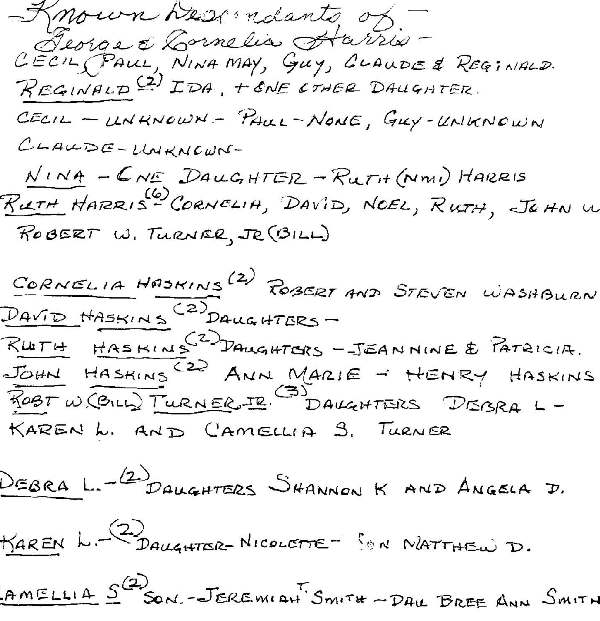 Known Descendants of —
George & Cornelia Harris —
CECIL, PAUL, NINA MAY, GUY, CLAUDE & REGINALD.
REGINALD (2) IDA, + ONE OTHER DAUGHTER.
CECIL — UNKNOWN — PAUL — NONE, GUY — UNKNOWN
CLAUDE — UNKNOWN —
NINA — ONE DAUGHTER — RUTH (NMI) HARRIS
RUTH HARRIS (6) — CORNELIA, DAVID, NOEL, RUTH, JOHN W
ROBERT W. TURNER, JR (BILL)
CORNELIA HASKINS (2) ROBERT AND STEVEN WASHBURN
DAVID HASKINS (2) DAUGHTERS —
RUTH HASKINS (2) DAUGHTERS — JEANNINE & PATRICIA.
JOHN HASKINS (2) ANN MARIE — HENRY HASKINS
ROBT W (BILL) TURNER, JR. (3) DAUGHTERS DEBRA L —
KAREN L. AND CAMELLIA S. TURNER
DEBRA L. — (2) DAUGHTERS SHANNON K AND ANGELA D.
KAREN L. — (2) DAUGHTER — NICOLETTE — SON MATTHEW D.
CAMELLIA S (2) SON. — JEREMIAH T. SMITH — DAU BREE ANN SMITH